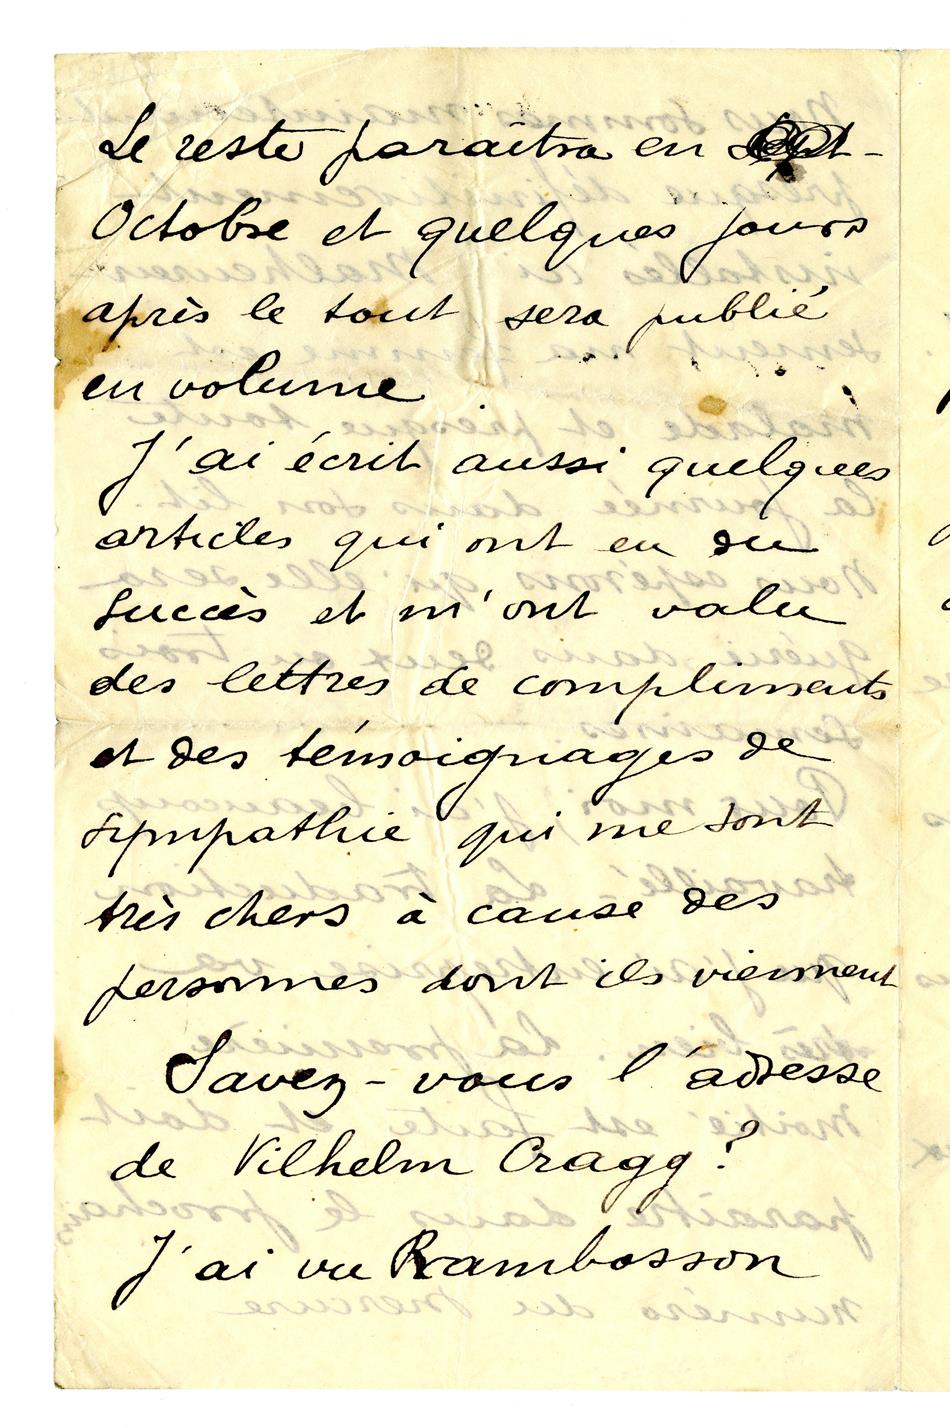 Le reste paraîtra en Sept-
Octobre et quelques jours
après le tout sera publié
en volume
J'ai écrit aussi quelques
articles qui ont eu du
succès et m'ont valu
des lettres de compliments
et des témoignages de
sympathie qui me sont
très chers à cause des
personnes dont ils viennent
Savez-vous l'adresse
de Vilhelm Cragg?
J'ai vu Rambosson